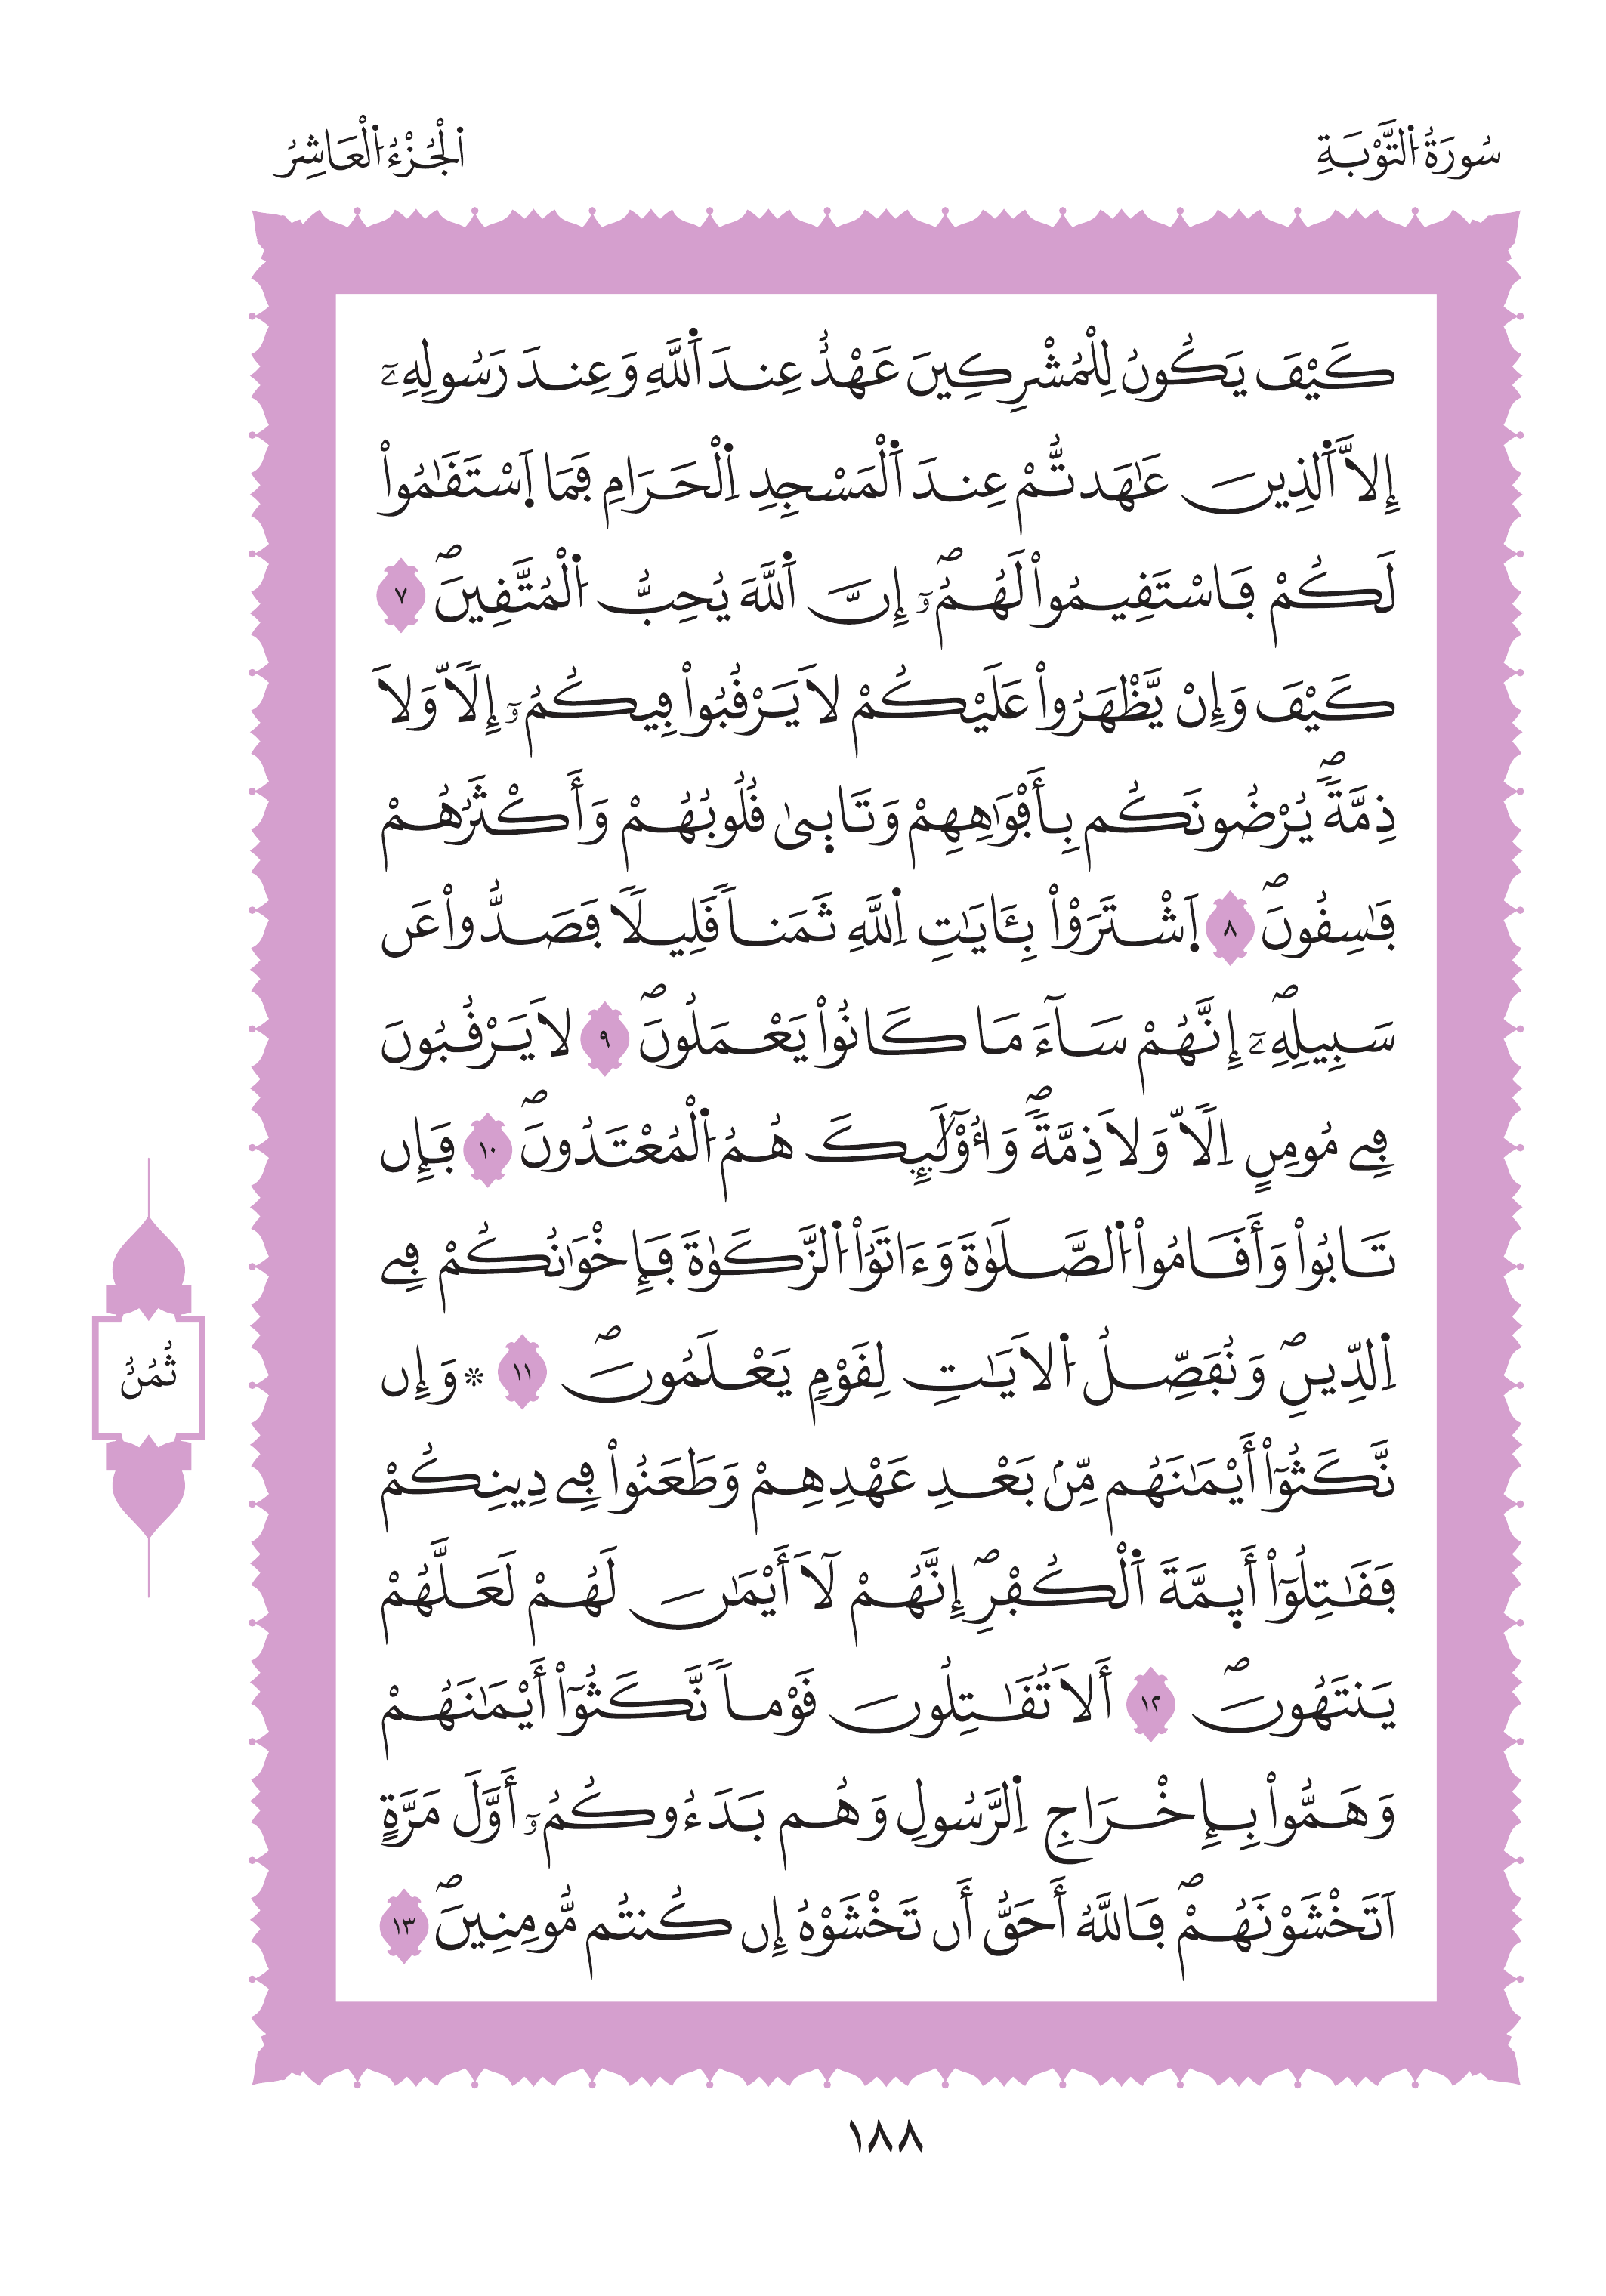 سُورَةُ اُ۬لتَّوْبَةِ
اُ۬لْجُزْءُ اُ۬لْعَاشِرُ
كَيْفَ يَكُونُ لِلْمُشْرِكِينَ عَهْدٌ عِندَ اَ۬للَّهِ وَعِندَ رَسُولِهِۦٓ
إِلَّا اَ۬لذِينَ عَٰهَدتُّمْ عِندَ اَ۬لْمَسْجِدِ اِ۬لْحَرَامِ فَمَا اَ۪سْتَقَٰمُواْ
لَكُمْ فَاسْتَقِيمُواْ لَهُمُۥٓۖ إِنَّ اَ۬للَّهَ يُحِبُّ اُ۬لْمُتَّقِينَۖ ٧
كَيْفَ وَإِنْ يَّظْهَرُواْ عَلَيْكُمْ لَا يَرْقُبُواْ فِيكُمُۥٓ إِلّاٗ وَلَا
ذِمَّةٗۖ يُرْضُونَكُم بِأَفْوَٰهِهِمْ وَتَاب۪ىٰ قُلُوبُهُمْ وَأَكْثَرُهُمْ
فَٰسِقُونَۖ ٨ اَ۪شْتَرَوْاْ بِـَٔايَٰتِ اِ۬للَّهِ ثَمَناٗ قَلِيلاٗ فَصَدُّواْ عَن
سَبِيلِهِۦٓ إِنَّهُمْ سَآءَ مَا كَانُواْ يَعْمَلُونَۖ ٩ لَا يَرْقُبُونَ
فِے مُومِنٍ اِلّاٗ وَلَا ذِمَّةٗۖ وَأُوْلَٰٓئِكَ هُمُ اُ۬لْمُعْتَدُونَۖ ١٠ فَإِن
تَابُواْ وَأَقَامُواْ اُ۬لصَّلَوٰةَ وَءَاتَوُاْ اُ۬لزَّكَوٰةَ فَإِخْوَٰنُكُمْ فِے
اِ۬لدِّينِۖ وَنُفَصِّلُ اُ۬لَايَٰتِ لِقَوْمٍ يَعْلَمُونَۖ ١١ ۞وَإِن
نَّكَثُوٓاْ أَيْمَٰنَهُم مِّنۢ بَعْدِ عَهْدِهِمْ وَطَعَنُواْ فِے دِينِكُمْ
فَقَٰتِلُوٓاْ أَي۪مَّةَ اَ۬لْكُفْرِۖ إِنَّهُمْ لَآ أَيْمَٰنَ لَهُمْ لَعَلَّهُمْ
يَنتَهُونَۖ ١٢ أَلَا تُقَٰتِلُونَ قَوْماٗ نَّكَثُوٓاْ أَيْمَٰنَهُمْ
وَهَمُّواْ بِإِخْرَاجِ اِ۬لرَّسُولِ وَهُم بَدَءُوكُمُۥٓ أَوَّلَ مَرَّةٍ
اَتَخْشَوْنَهُمْۖ فَاللَّهُ أَحَقُّ أَن تَخْشَوْهُ إِن كُنتُم مُّومِنِينَۖ ١٣
ثُمُنُ
١٨٨